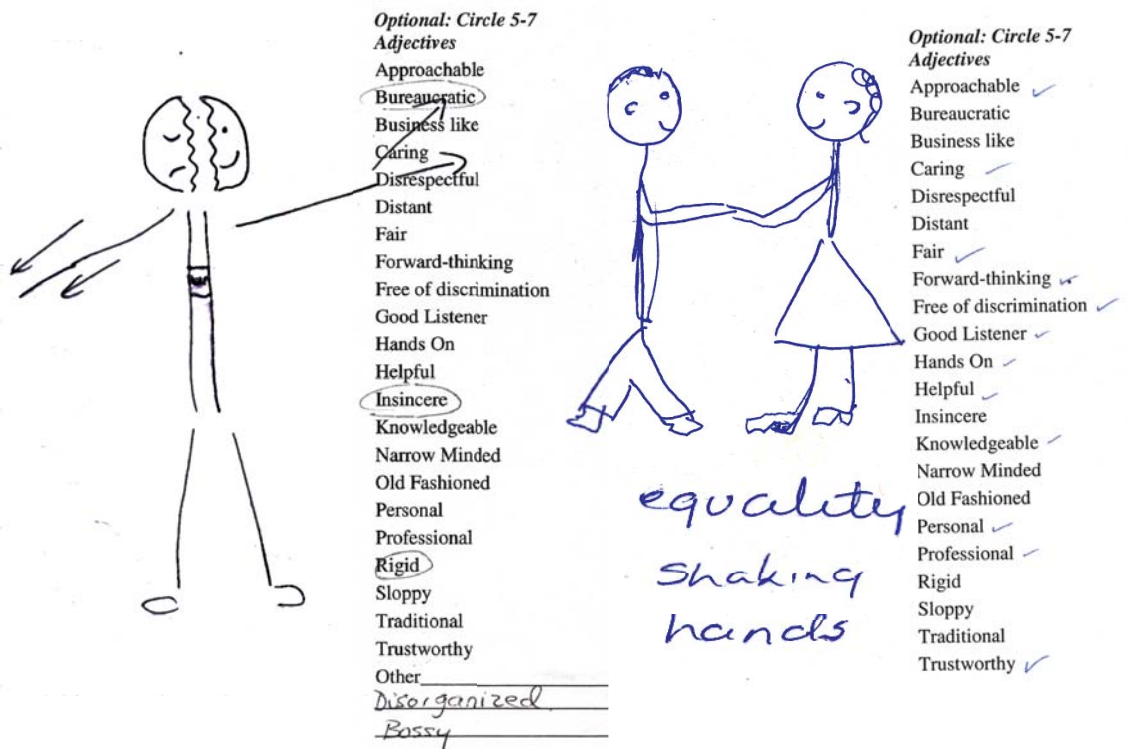 Optional: Circle 5-7
Adjectives
Approachable
Bureaucratic
Business like
Caring
Disrespectful
Distant
Fair
Forward-thinking
Free of discrimination
Good Listener
Hands On
Helpful
Insincere
Knowledgeable
Narrow Minded
Old Fashioned
Personal
Professional
Rigid
Sloppy
Traditional
Trustworthy
Other
Disorganized
Bossy
equality
shaking
hands
Optional: Circle 5-7
Adjectives
Approachable
Bureaucratic
Business like
Caring
Disrespectful
Distant
Fair
Forward-thinking
Free of discrimination
Good Listener
Hands On
Helpful
Insincere
Knowledgeable
Narrow Minded
Old Fashioned
Personal
Professional
Rigid
Sloppy
Traditional
Trustworthy